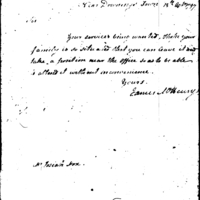 Near Downings June
Sir
Your services being wanted, should your
family is so situated that you can leave it and
take, a position near the office so as to be able
to attend it without inconvenience.
Yours.
James McHenry
Mr Josiah Fox